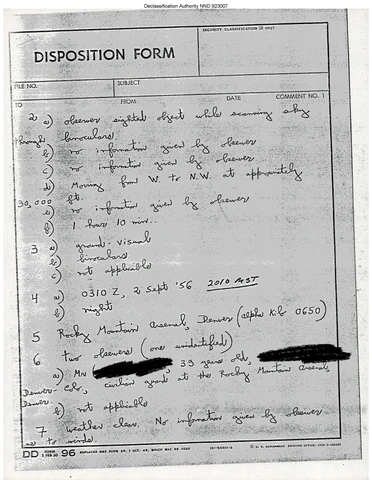 Declassification Authority NND 923007
SECURITY CLASSIFICATION (If any)
DISPOSITION FORM
FILE NO.
SUBJECT
TO
FROM
DATE
COMMENT NO. 1
2 a) observer sighted object while scanning sky
through binoculars.
b) no information given by observer
c) no information given by observer
d) Moving from W. to N.W. at approximately
30,000 ft.
e) no information given by observer
f) 1 hour 10 min...
3 a) ground-visual
b) binoculars
c) not applicable
4 a) 0310 Z, 2 Sept '56 2010 MST
b) night
5 Rocky Mountain Arsenal, Denver (alpha Kilo 0650)
6 two observers (one unidentified)
a) Mr , 39 years old,
Denver Colo, civilian guard at the Rocky Mountain Arsenal
Denver.
b) not applicable
7 weather clear. No information given by observer
as to winds.
DD FORM 96 REPLACES NME FORM 96, 1 OCT. 48, WHICH MAY BE USED
1 FEB 50